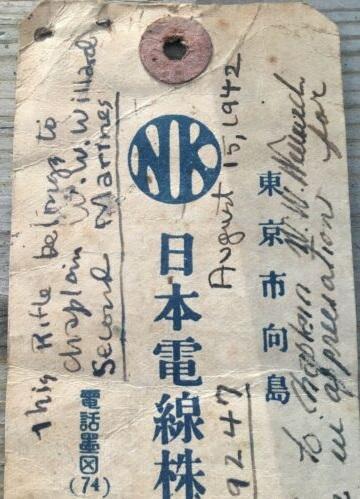 This Rifle belongs to
Chaplain W. W. Willard
Second Marines
August 15, 1942
9247
NK
東京市向島
日本電線株
電話墨田
(74)
to Chaplain W. W. Willard
in appreciation for